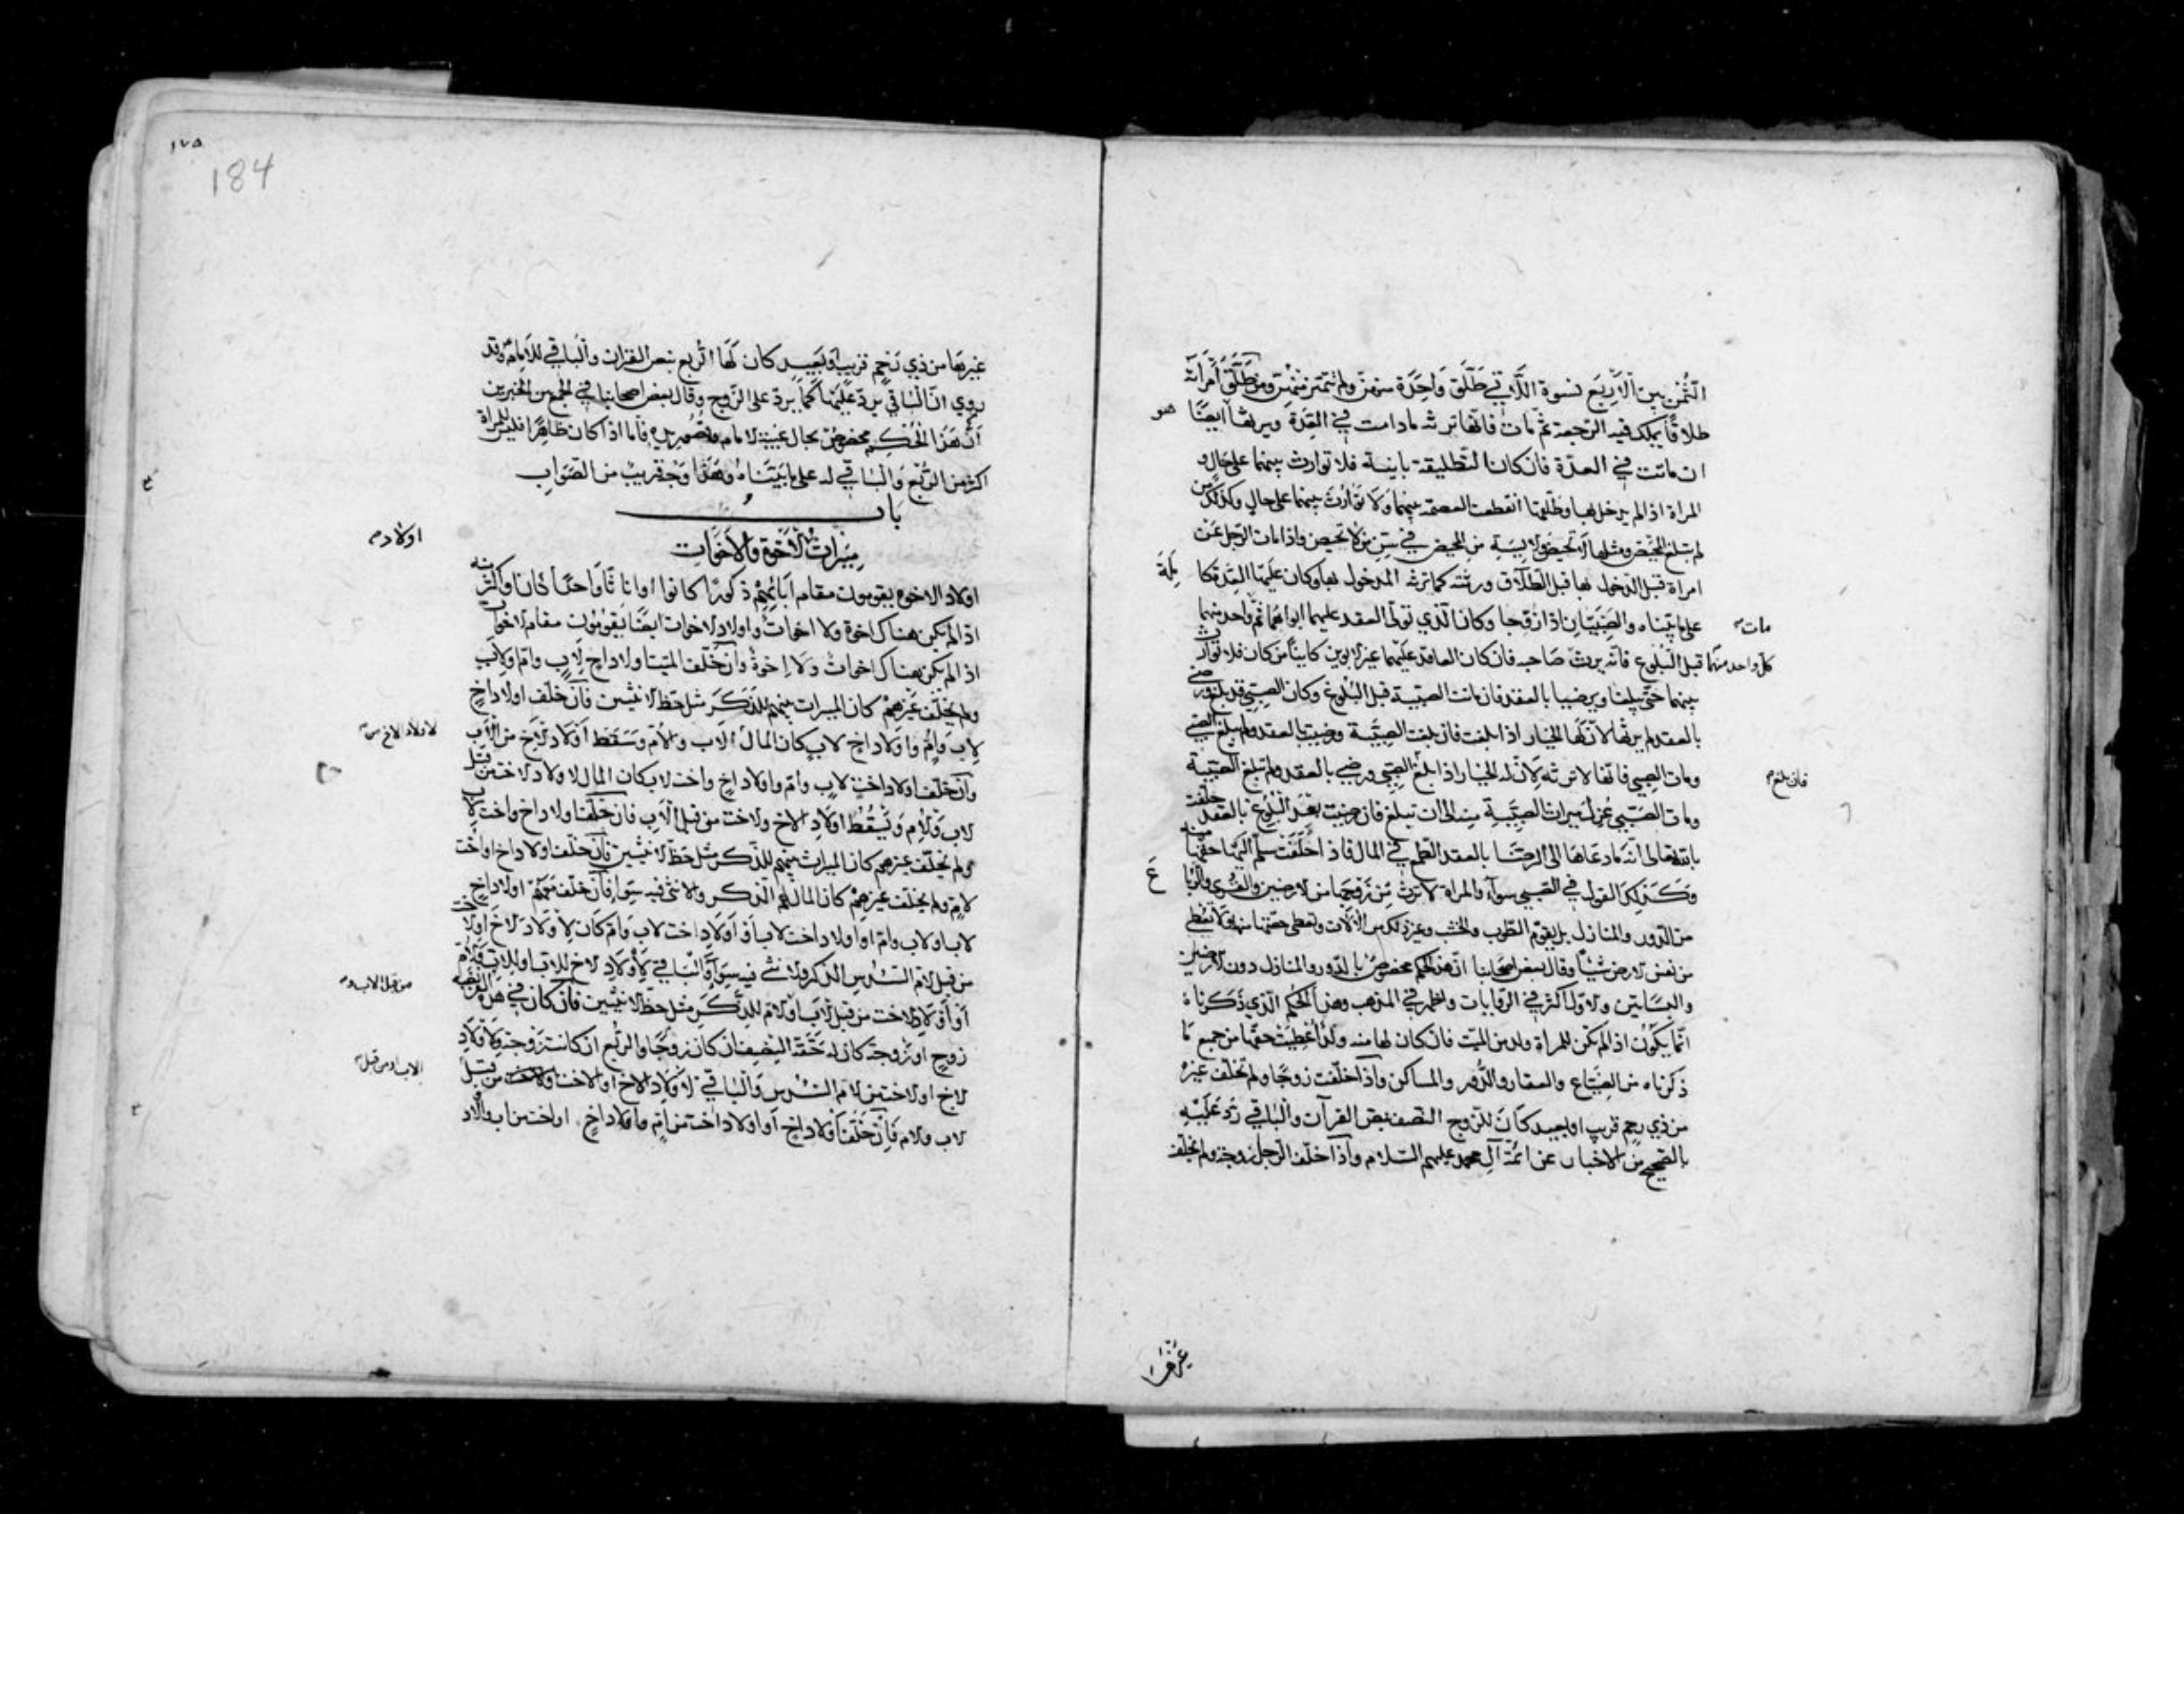 الثمن بين الاربع نسوة اللاتي طلق واحدة منهن ولم تتميز منهن ومن طلق امراته
طلاقا يملك فيه الرجعة ثم مات فانها ترثه مادامت في العدة ويرثها ايضا هو
ان ماتت في العدة فان كان التطليقة باينة فلا توارث بينهما على حال و
المراة اذا لم يدخل بها وطلقها انقطعت العصمة بينهما ولا توارث بينهما على حال وكذلك من
لم تبلغ المحيض ومثلها لا تحيض والايسة من المحيض في سن من لا تحيض واذا مات الرجل عن
امراة قبل الدخول بها قبل الطلاق ورثته كما ترثه المدخول بها وكان عليها العدة كاملة
على ما بيناه والصبيان اذا زوجا وكان الذي تولى العقد عليهما ابواهما ثم واحد منهما
مات
كل واحد منهما قبل البلوغ فانه يرث صاحبه فان كان العاقد عليهما غير الابوين كاينا من كان فلا توارث
بينهما حتى يبلغا ويرضيا بالعقد فان ماتت الصبية قبل البلوغ وكان الصبي قد بلغ ورضي
بالعقد لم يرثها لان لها الخيار اذا بلغت فان بلغت الصبية ورضيت بالعقد ولم يبلغ الصبي
ومات الصبي فانها لا ترثه لان له الخيار اذا بلغ الصبي ورضي بالعقد ولم تبلغ الصبية
فان بلغ
ومات الصبي عزل ميراث الصبية منه الى ان تبلغ فان رضيت بعد البلوغ بالعقد حلفت
بالله تعالى انه ما دعاها الى الرضا بالعقد الطمع في المال فاذا حلفت سلم اليها حقها منه
وكذلك القول في الصبي سواء والمراة لا ترث من زوجها من الارضين والقرى والرباع
من الدور والمنازل بل يقوم الطوب والخشب وغير ذلك من الالات وتعطى حصتها منها ولا تعطى
من نفس الارض شيئا وقال بعض اصحابنا ان هذا الحكم مخصوص بالدور والمنازل دون الارضين
والبساتين والاول اكثر في الروايات واظهر في المذهب وهذا الحكم الذي ذكرناه
انما يكون اذا لم يكن للمراة ولد من الميت فان كان لها منه ولد اعطيت حقها من جميع ما
ذكرناه من الضياع والعقار والدور والمساكن واذا خلفت زوجا ولم تخلف غيره
من ذي رحم قريب او بعيد كان للزوج النصف بنص القران والباقي رد عليه
بالصحيح من الاخبار عن ائمة آل محمد عليهم السلام واذا خلف الرجل زوجة ولم يخلف
غيرها
١٧٥
184
غيرها من ذي رحم قريب او بعيد كان لها الربع بنص القران والباقي للامام وقد
روي ان الباقي يرد عليها كما يرد على الزوج وقال بعض اصحابنا في الجمع بين الخبرين
ان هذا الحكم مخصوص بحال غيبة الامام وقصور يده فاما اذا كان ظاهرا فليس للمراة
اكثر من الربع والباقي له على ما بيناه وهذا وجه قريب من الصواب
باب
ميراث الاخوة والاخوات
اولادهم
اولاد الاخوة يقومون مقام ابائهم ذكورا كانوا او اناثا واحدا كان او اكثر منه
اذا لم يكن هناك اخوة ولا اخوات واولاد الاخوات ايضا يقومون مقام الاخوات
اذا لم يكن هناك اخوات ولا اخوة وان خلف الميت اولاد اخ لاب وام ولاب
ولم يخلف غيرهم كان الميراث بينهم للذكر مثل حظ الانثيين فان خلف اولاد اخ
لاب وام واولاد اخ لاب كان المال الاب والام وسقط اولاد الاخ من الاب
لاولاد الاخ من
وان خلف اولاد اخت لاب وام واولاد اخ واخت لاب كان المال لاولاد الاخت من قبل
لاب ولام وتسقط اولاد الاخ والاخت من قبل الاب فان خلف اولاد اخ واخت لاب
ولم يخلف غيرهم كان الميراث بينهم للذكر مثل حظ الانثيين فان خلف اولاد اخ او اخت
لام ولم يخلف غيرهم كان المال لهم الذكر والانثى فيه سواء فان خلف معهم اولاد اخ
لاب او لاب وام او اولاد اخت لاب او اولاد اخت لاب وام كان لاولاد الاخ او الاخت
من قبل الام السدس الذكر والانثى فيه سواء والباقي لاولاد الاخ للاب او للاب وللام
او اولاد الاخت من قبل الاب او لام للذكر مثل حظ الانثيين فان كان في هذه الفريضة
من قبل الاب و
زوج او زوجة كان له حقه النصف ان كان زوجا والربع ان كانت زوجة ولاولاد
الاخ او الاخت من الام السدس والباقي لاولاد الاخ او الاخت من قبل
الاب او من قبل
لاب ولام فان خلف اولاد اخ او اولاد اخت من ام واولاد اخ او اخت من اب واولاد